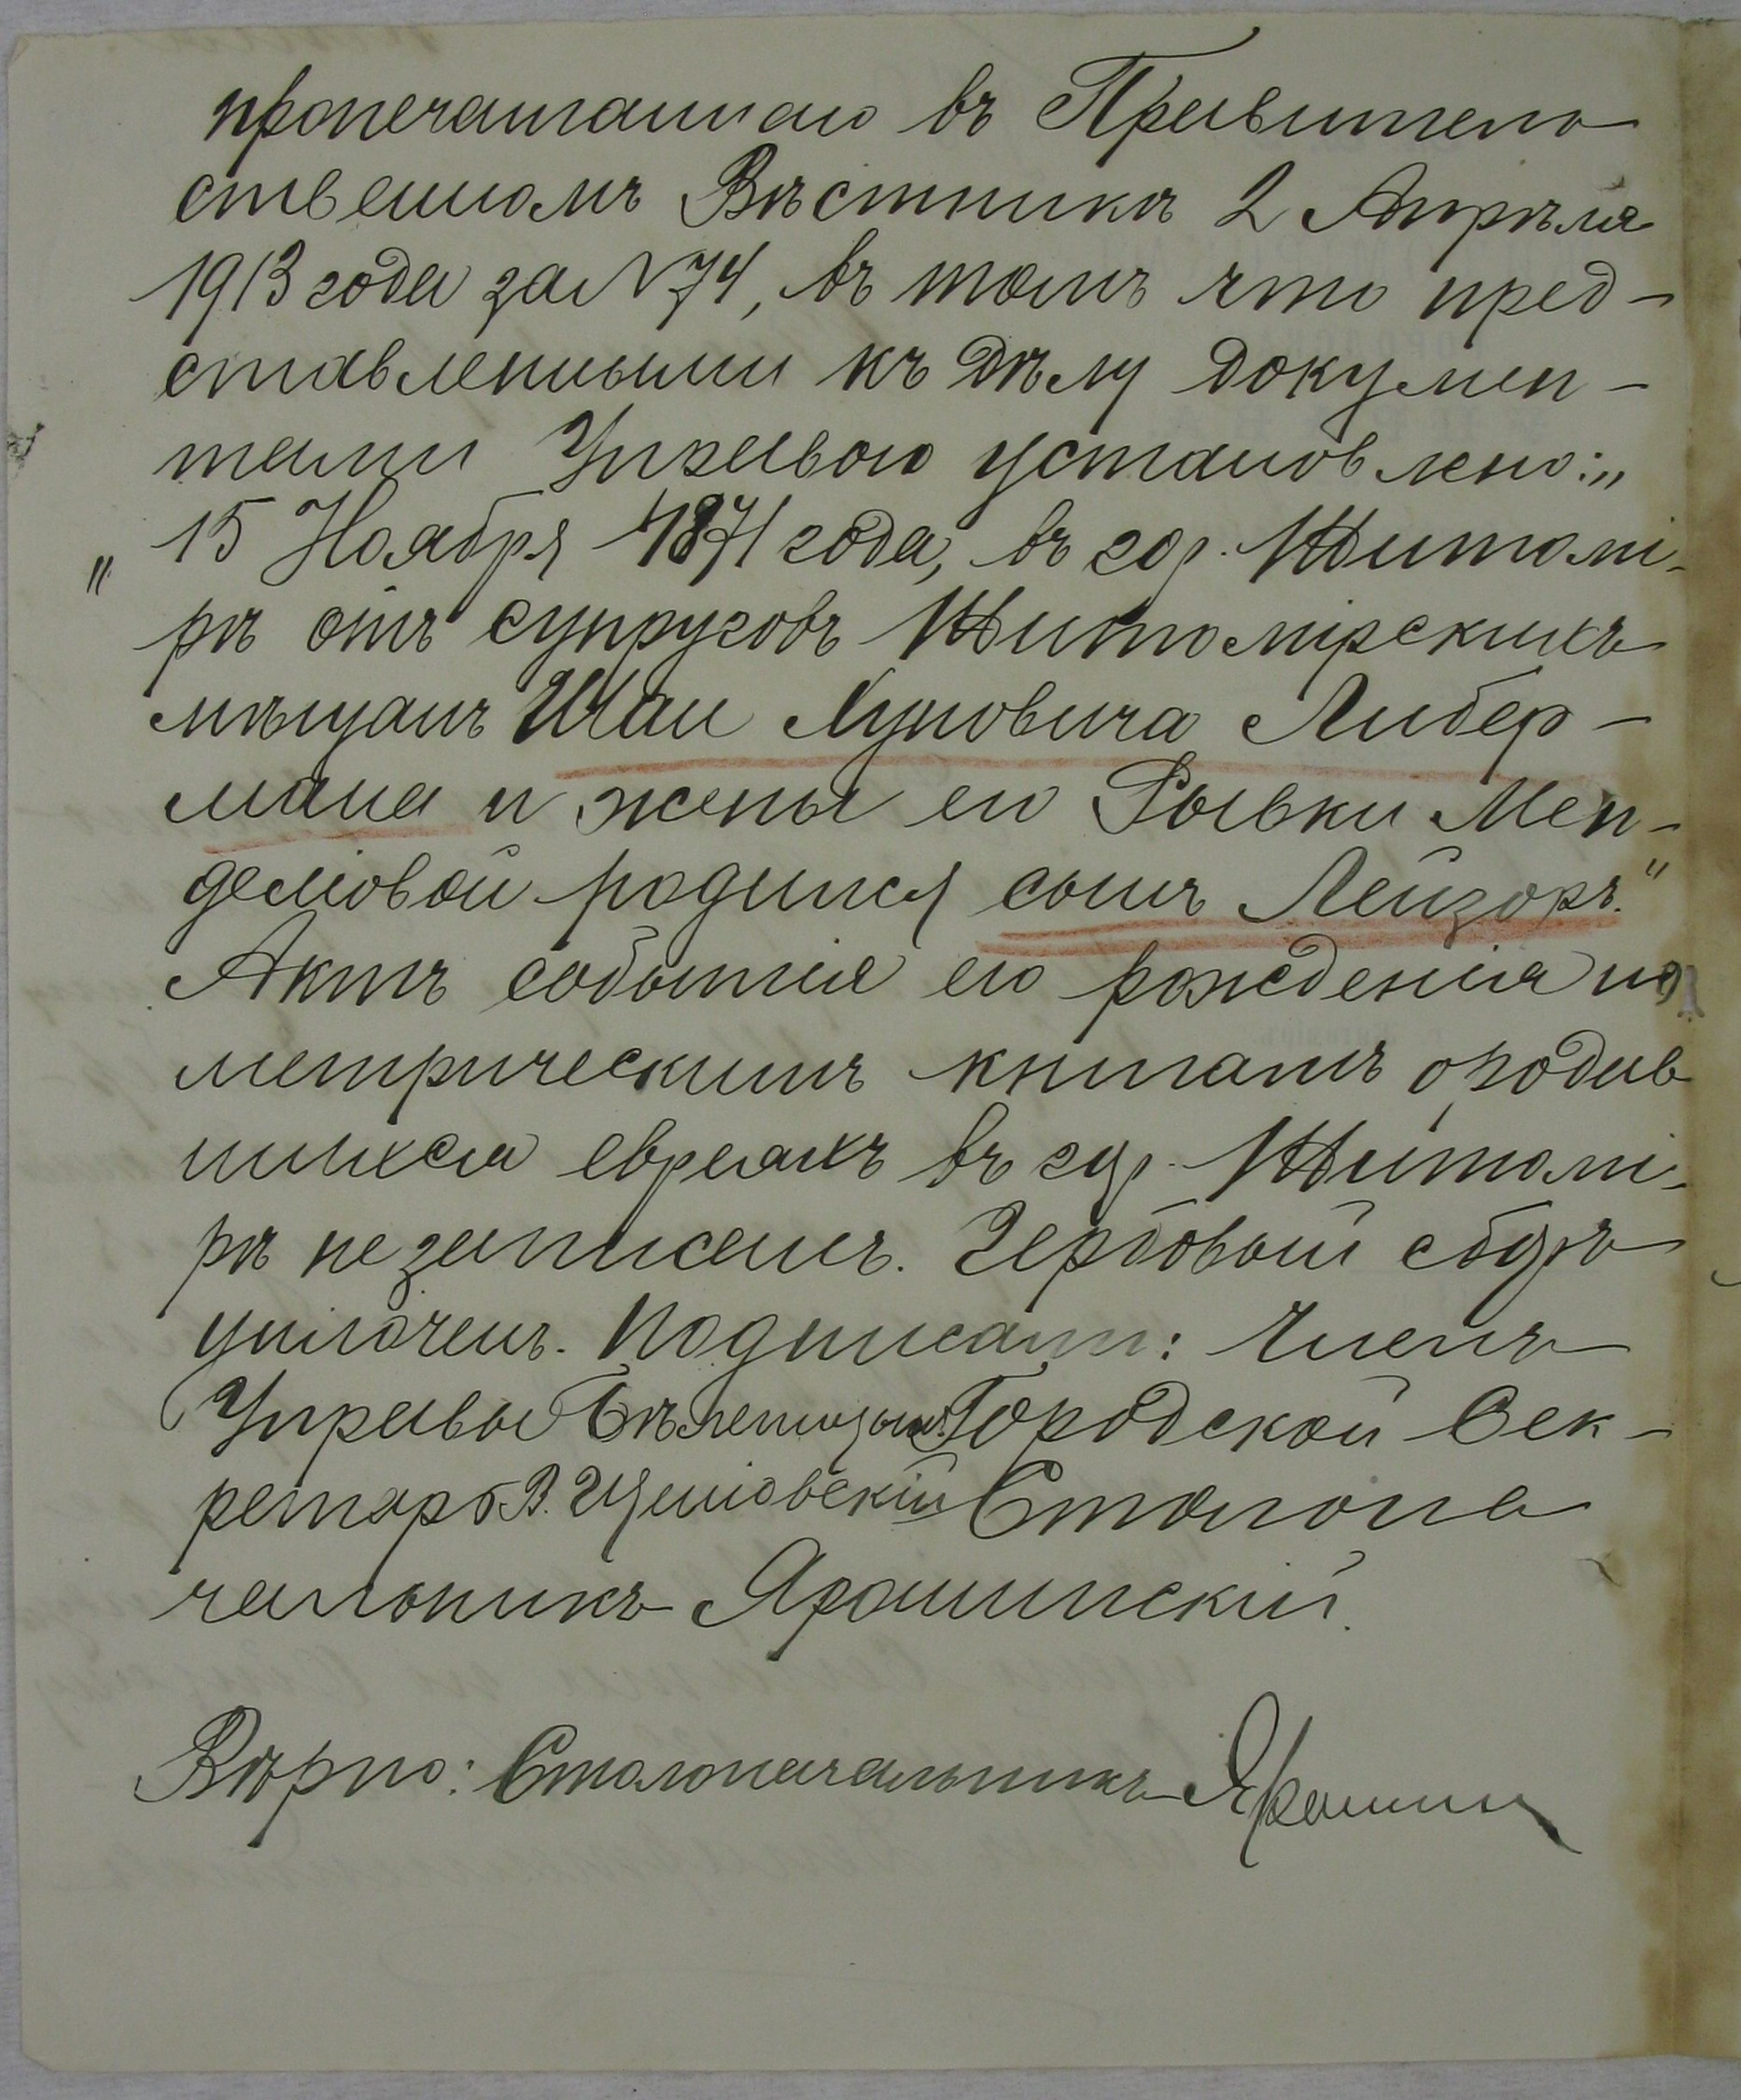 пропечатаннаго въ Правитель
ственномъ Вѣстникѣ 2 Апрѣля
1913 года за N 74, въ томъ что пред-
ставленными къ дѣлу докумен-
тами Управою установлено:„
„15 Ноября 1871 года, въ гор. Житомі-
рѣ отъ супруговъ Житомірскихъ
мѣщанъ Шаи Хуновича Либер-
мана и жены его Рывки Мен-
делiовой родился сынъ Лейзоръ."
Актъ событія его рожденія по
метрическимъ книгамъ о родив
шихся евреяхъ въ гор. Житомі-
рѣ не записанъ. Гербовый сборъ
уплаченъ. Подписали: Членъ
Управы Городской Сек-
ретарь В. Столона
чальникъ Ярошинскій.
Вѣрно: Столоначальникъ Ярошин